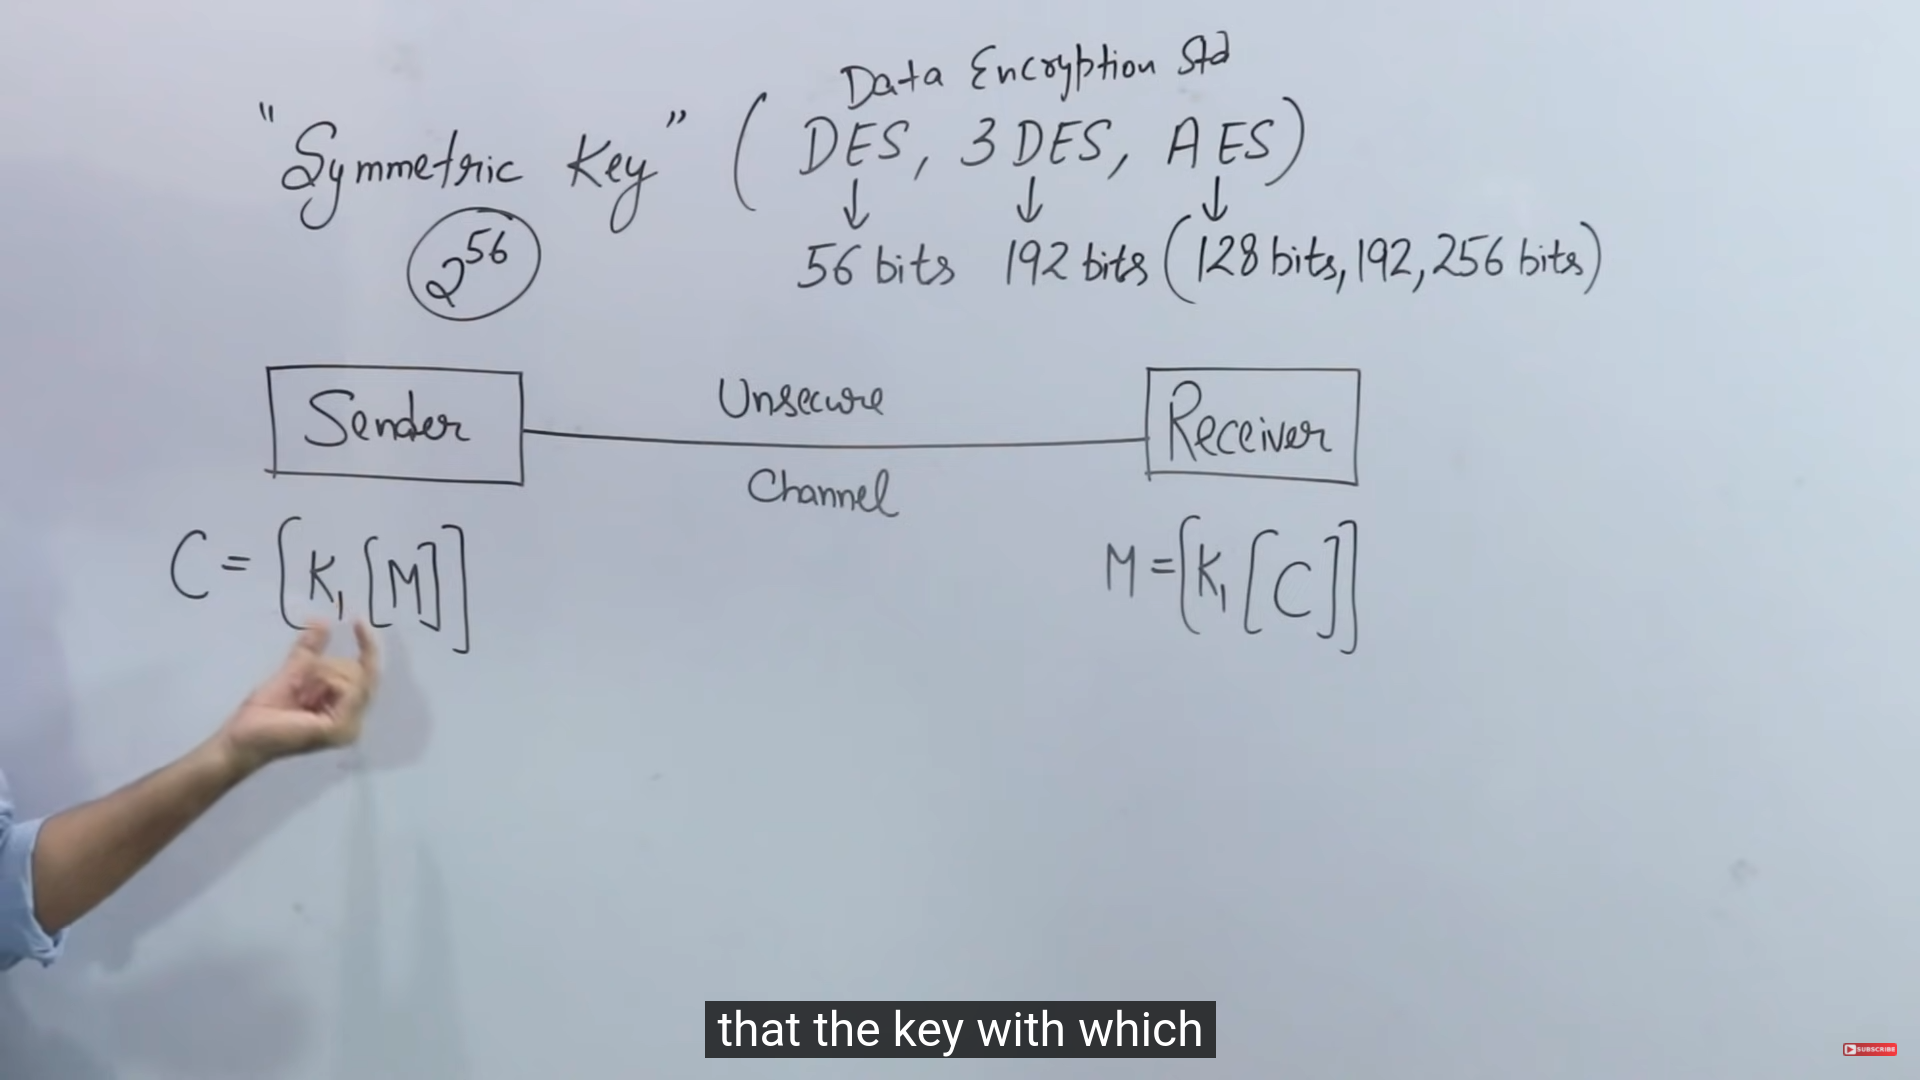 Data Encryption Std
"Symmetric Key" ( DES, 3DES, AES)
2^56
↓ ↓ ↓
56 bits 192 bits (128 bits, 192, 256 bits)
Sender
Unsecure
Channel
Receiver
C = [K₁[M]]
M = [K₁[C]]
that the key with which
SUBSCRIBE